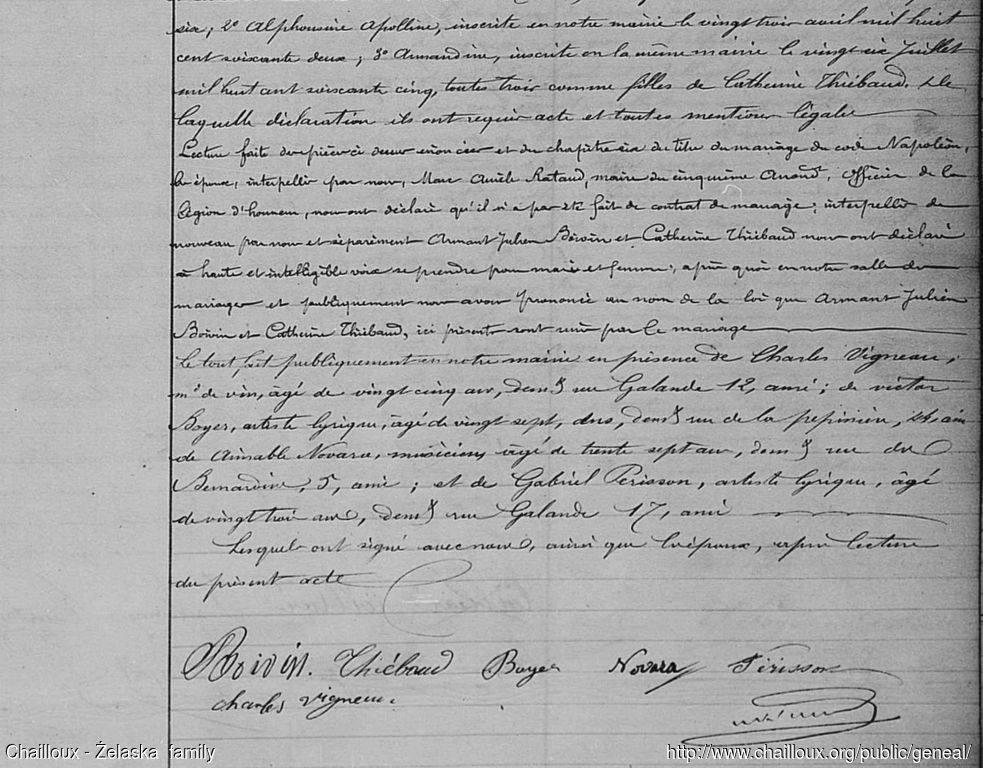 six; 2º Alphonsine Apolline, inscrite en notre mairie le vingt trois avril mil huit
cent soixante deux; 3º Armandine, inscrite en la même mairie le vingt six Juillet
mil huit cent soixante cinq, toutes trois comme filles de Catherine Thiébaud. De
laquelle déclaration ils ont requis acte et toutes mentions légales
Lecture faite des pièces ci dessus énoncées et du chapitre six du titre du mariage du code Napoléon,
les époux, interpellés par nous, Marc Aurèle Rataud, maire du cinquième Arrond.t, officier de la
Légion d'honneur, nous ont déclaré qu'il n'a pas été fait de contrat de mariage; interpellés de
nouveau par nous et séparément Armant Julien Boivin et Catherine Thiébaud nous ont déclaré
à haute et intelligible voix se prendre pour mari et femme; après quoi en notre salle des
mariages et publiquement nous avons prononcé au nom de la loi que Armant Julien
Boivin et Catherine Thiébaud, ici présents sont unis par le mariage
Le tout fait publiquement en notre mairie en présence de Charles Vigneau,
m.d de vin, âgé de vingt cinq ans, dem.t rue Galande 12, ami; de victor
Boyer, artiste lyrique, âgé de vingt sept, ans, dem.t rue de la pepinière, 44, ami
de Aimable Novara, musicien, âgé de trente sept ans, dem.t rue des
Bernardins, 5, ami; et de Gabriel Perisson, artiste lyrique, âgé
de vingt trois ans, dem.t rue Galande 17, ami
Lesquels ont signé avec nous, ainsi que les époux, après lecture
du présent acte
Boivin. Thiébaud Boyer Novara Périsson
charles vigneau.
Chailloux - Żelaska family
http://www.chailloux.org/public/geneal/